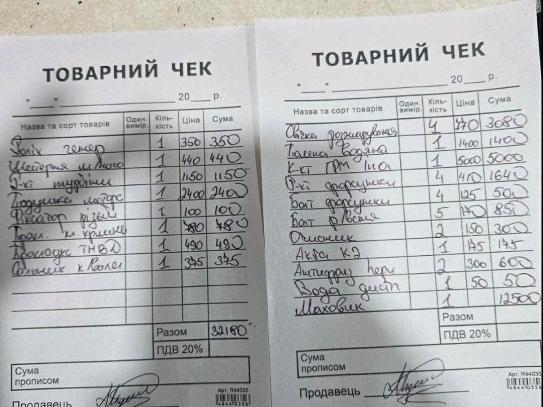 ТОВАРНИЙ ЧЕК
"___" ______ 20___ р.
Назва та сорт товарів Один. вимір. Кіль-кість Ціна Сума
генер 1 350 350
Шестерня 1 440 440
1 1150 1150
Подушка мотор 1 2400 2400
Фіксатор 1 100 100
1 780 780
Прокладк ТНВД 1 490 490
Сальник к 1 375 375
Разом 32180
ПДВ 20%
Сума прописом
Продавець
Арт. R44035
ТОВАРНИЙ ЧЕК
"___" ______ 20___ р.
Назва та сорт товарів Один. вимір. Кіль-кість Ціна Сума
Свічка розжарування 4 770 3080
Помпа Водяна 1 1400 1400
К-кт ГРМ 1 5000 5000
Р-кт форсунки 4 410 1640
Болт форсунки 4 125 500
Болт 5 170 850
Очисник 2 150 300
1 175 175
Антифриз 2 300 600
Вода дист 1 50 50
Маховик 1 12500
Разом
ПДВ 20%
Сума прописом
Продавець
Арт. R44035